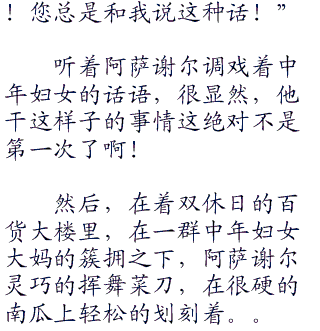 ！您总是和我说这种话！”
听着阿萨谢尔调戏着中
年妇女的话语，很显然，他
干这样子的事情这绝对不是
第一次了啊！
然后，在着双休日的百
货大楼里，在一群中年妇女
大妈的簇拥之下，阿萨谢尔
灵巧的挥舞菜刀，在很硬的
南瓜上轻松的划刻着。。